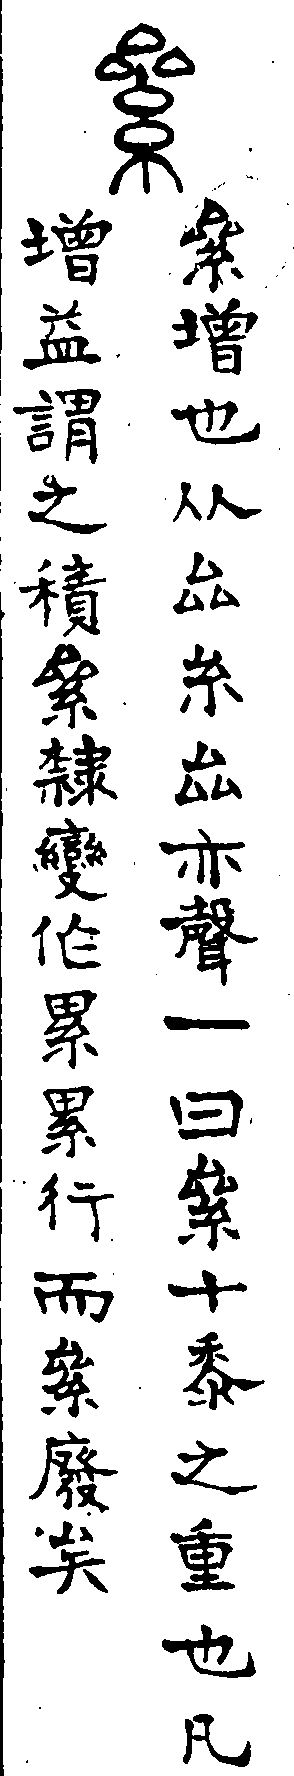 絫
絫增也从厽糸厽亦聲一曰絫十黍之重也凡
增益謂之積絫隸變作累累行而絫廢矣